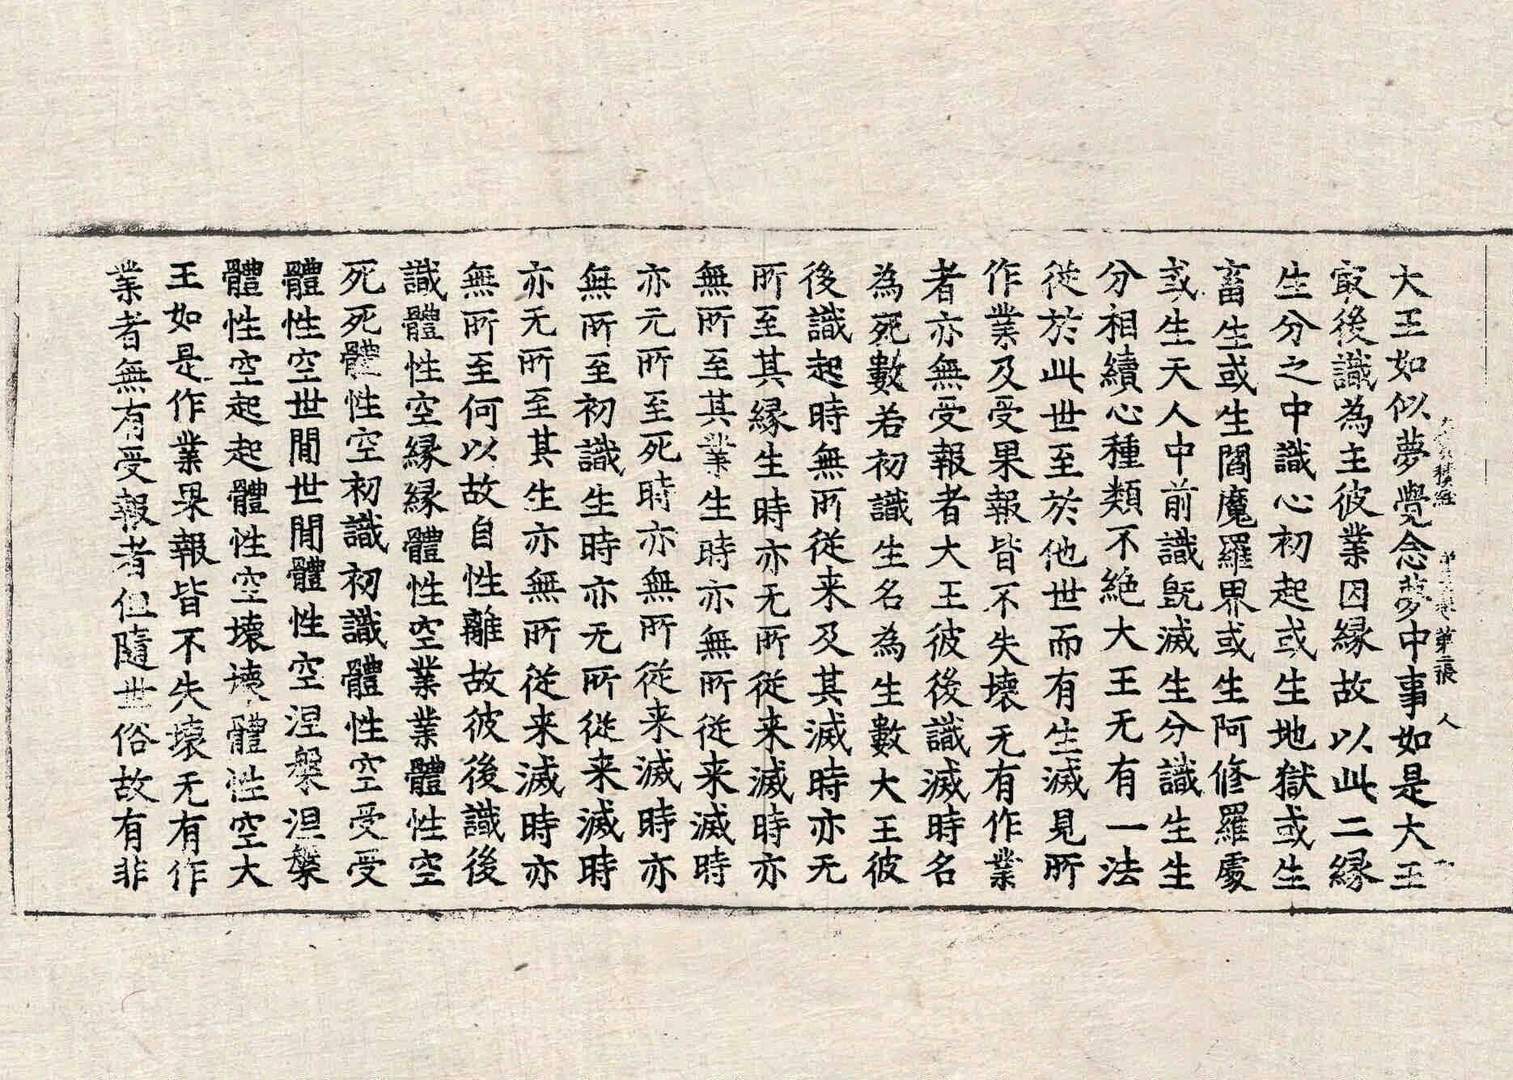 積經 第 張 人
大王如似夢覺念夢中事如是大王
㝡後識為主彼業因縁故以此二縁
生分之中識心初起或生地獄或生
畜生或生閻魔羅界或生阿修羅處
或生天人中前識旣滅生分識生生
分相續心種類不絶大王无有一法
従於此世至於他世而有生滅見所
作業及受果報皆不失壞无有作業
者亦無受報者大王彼後識滅時名
為死數若初識生名為生數大王彼
後識起時無所従来及其滅時亦无
所至其縁生時亦无所従来滅時亦
無所至其業生時亦無所従来滅時
亦无所至死時亦無所従来滅時亦
無所至初識生時亦无所従来滅時
亦无所至其生亦無所従来滅時亦
無所至何以故自性離故彼後識後
識體性空縁縁體性空業業體性空
死死體性空初識初識體性空受受
體性空世間世間體性空涅槃涅槃
體性空起起體性空壞壞體性空大
王如是作業果報皆不失壞无有作
業者無有受報者但隨世俗故有非